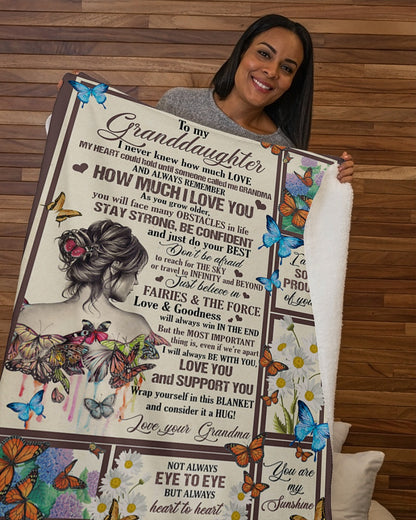 To my
Granddaughter
I never knew how much LOVE
MY HEART could hold until someone called me GRANDMA
AND ALWAYS REMEMBER
HOW MUCH I LOVE YOU
As you grow older,
you will face many OBSTACLES in life
STAY STRONG, BE CONFIDENT
and just do your BEST
Don't be afraid
to reach for THE SKY
or travel to INFINITY and BEYOND
Just believe in
FAIRIES & THE FORCE
Love & Goodness
will always win IN THE END
But the MOST IMPORTANT
thing is, even if we're apart
I will always BE WITH YOU,
LOVE YOU
and SUPPORT YOU
Wrap yourself in this BLANKET
and consider it a HUG!
Love your Grandma
SO
PROU
of you
NOT ALWAYS
EYE TO EYE
BUT ALWAYS
heart to heart
You are
my
Sunshine